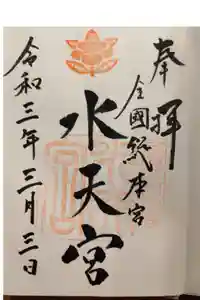 奉拝
全國総本宮
水天宮
令和三年三月三日